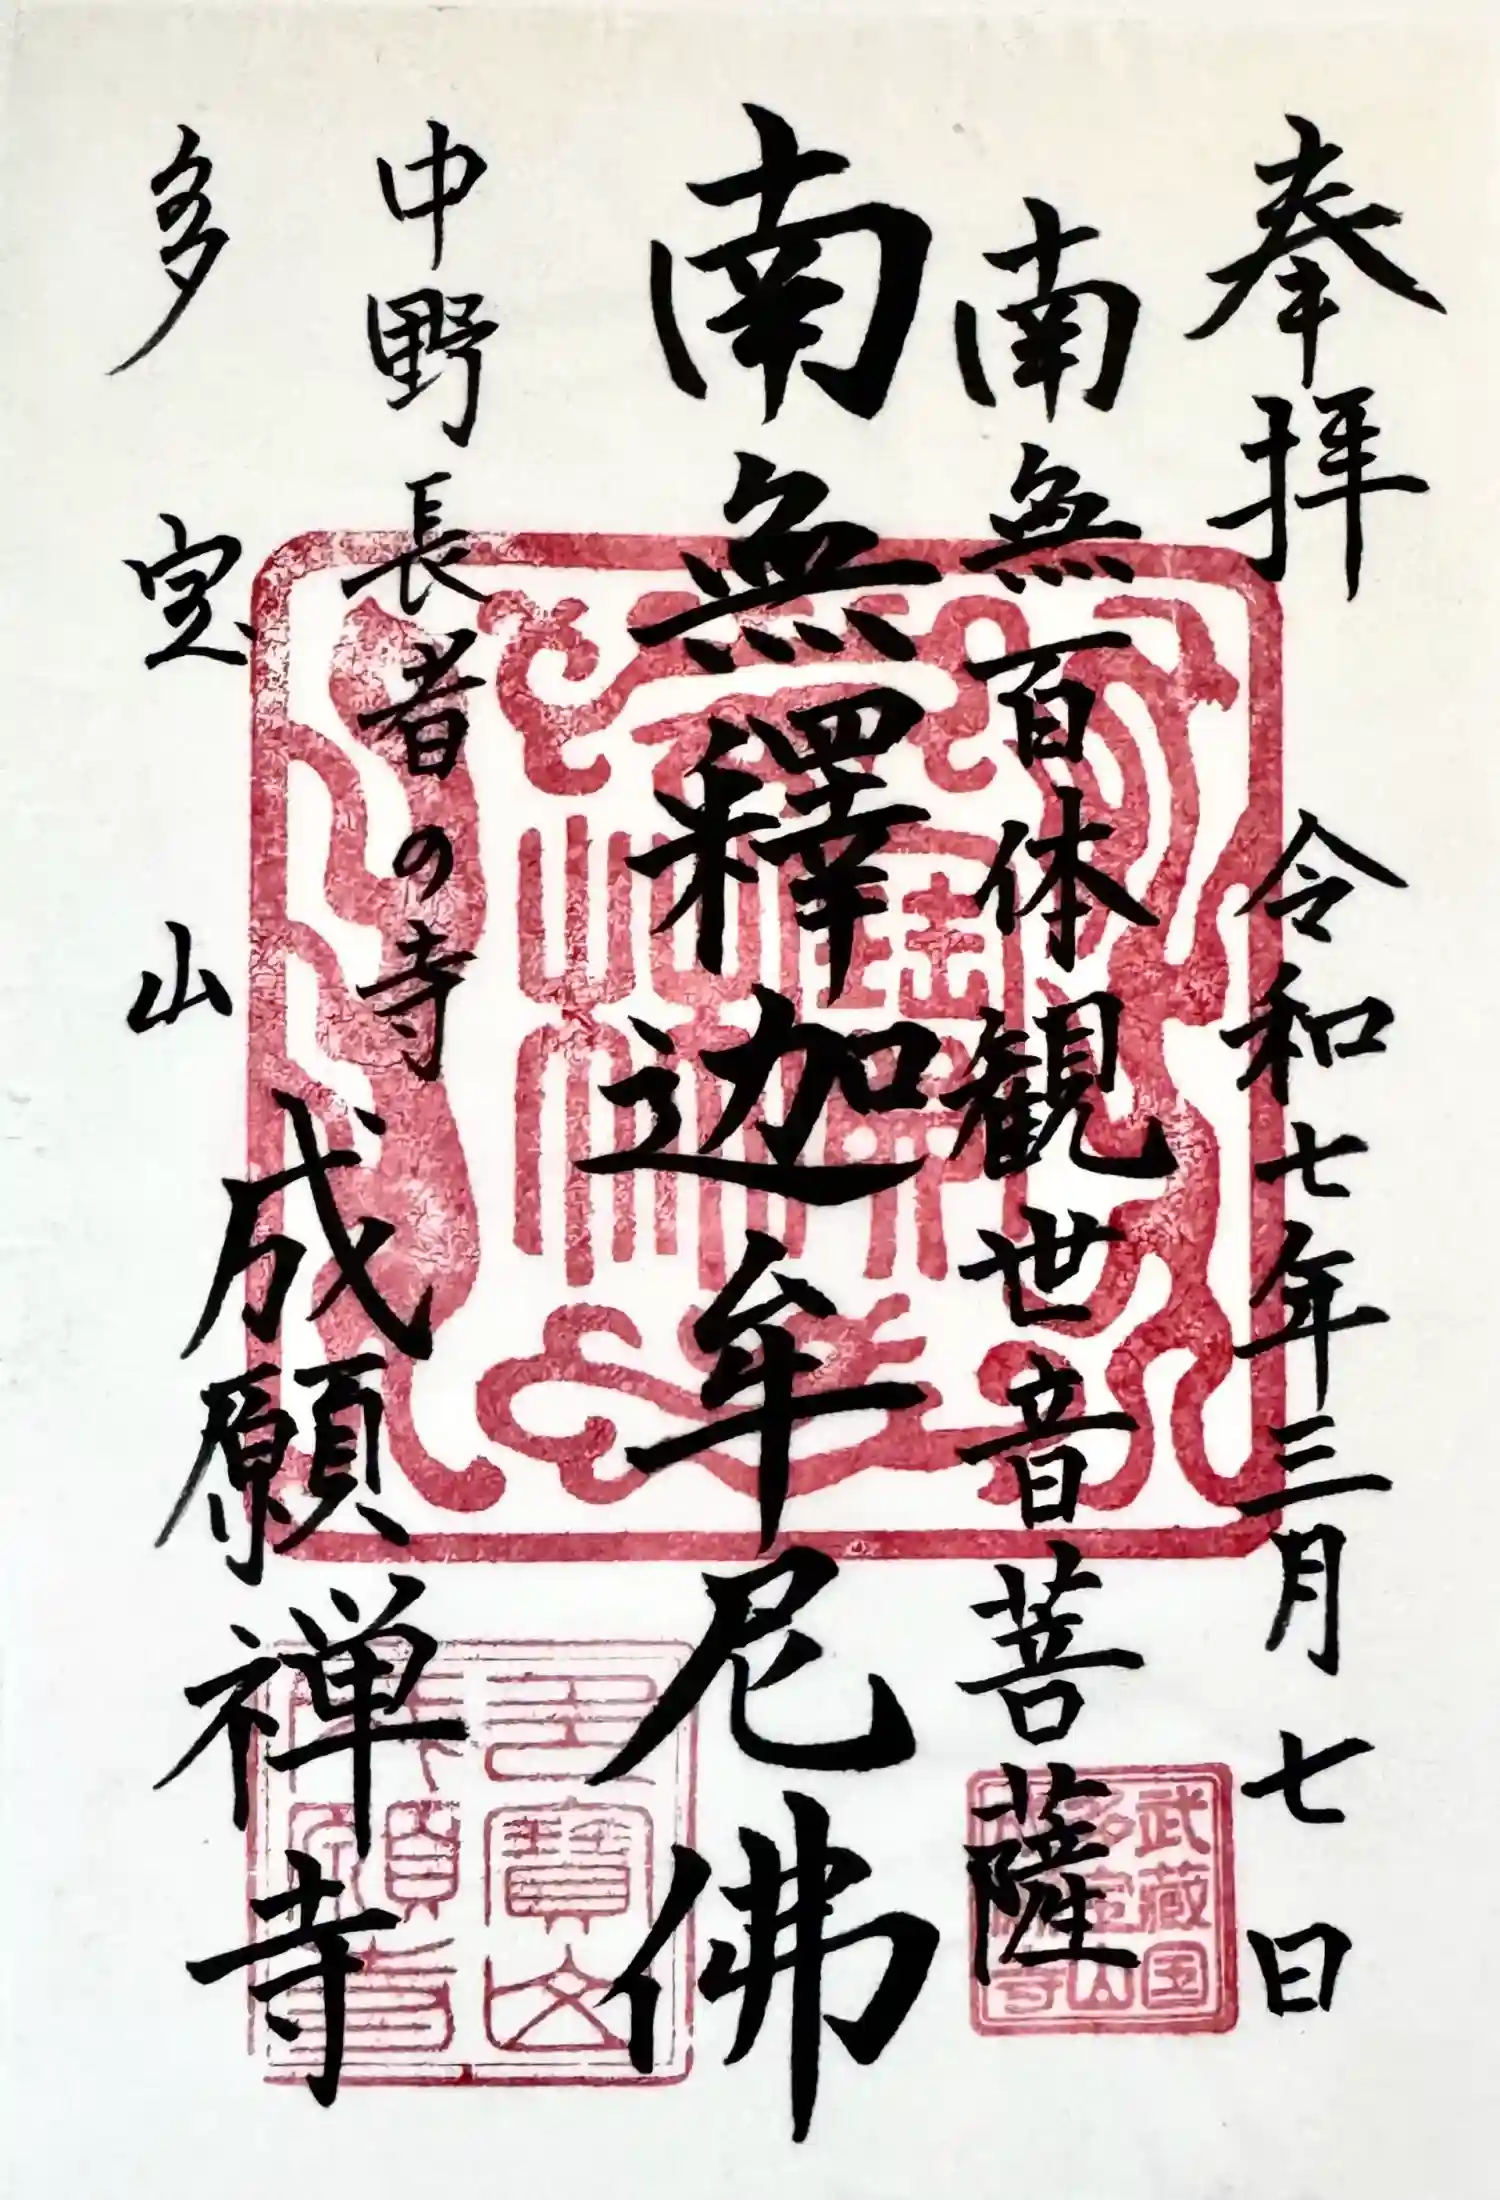 奉拝
令和七年三月七日
南無百体観世音菩薩
南無釋迦牟尼佛
中野長者の寺
多宝山
成願禅寺
武蔵国
多宝山
成願寺
多寶山
成願寺